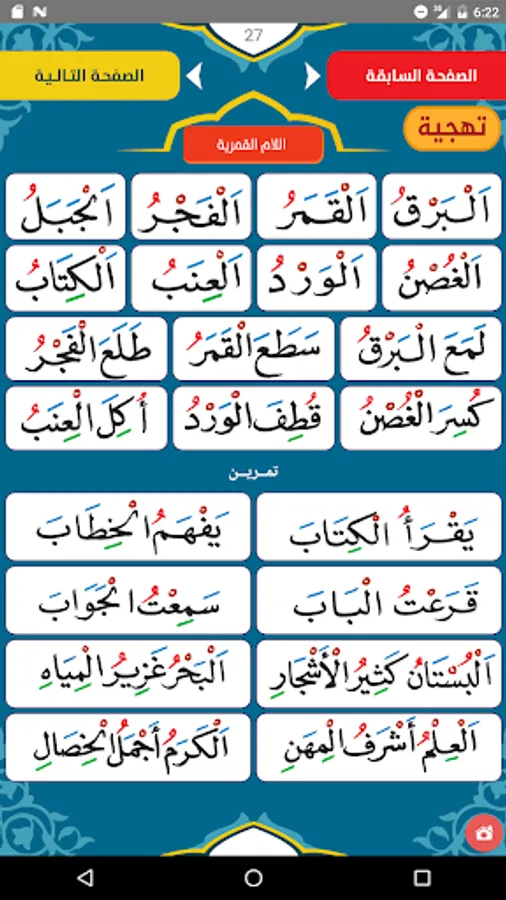 6:22
27
الصفحة السابقة
الصفحة التالية
تهجية
اللام القمرية
اَلْبَرْقُ اَلْقَمَرُ اَلْفَجْرُ اَلْجَبَلُ
اَلْغُصْنُ اَلْوَرْدُ اَلْعِنَبُ اَلْكِتَابُ
لَمَعَ الْبَرْقُ سَطَعَ الْقَمَرُ طَلَعَ الْفَجْرُ
كُسِرَ الْغُصْنُ قُطِفَ الْوَرْدُ أُكِلَ الْعِنَبُ
تمرين
يَقْرَأُ الْكِتَابَ يَفْهَمُ الْخِطَابَ
قَرَعْتُ الْبَابَ سَمِعْتُ الْجَوَابَ
اَلْبُسْتَانُ كَثِيرُ الْأَشْجَارِ اَلْبَحْرُ غَزِيرُ الْمِيَاهِ
اَلْعِلْمُ أَشْرَفُ الْمِهَنِ اَلْكَرَمُ أَجْمَلُ الْخِصَالِ